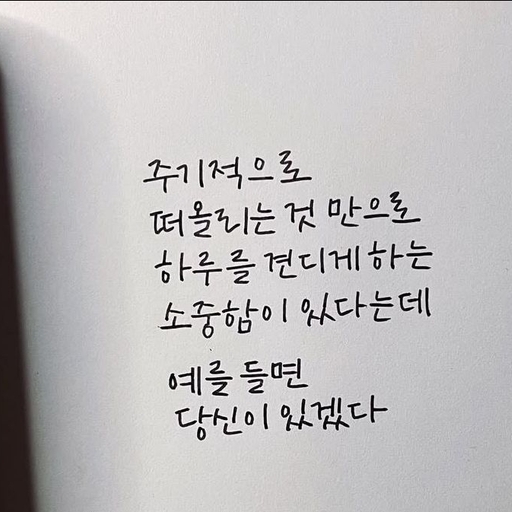 주기적으로
떠올리는 것 만으로
하루를 견디게 하는
소중함이 있다는데
예를 들면
당신이 있겠다